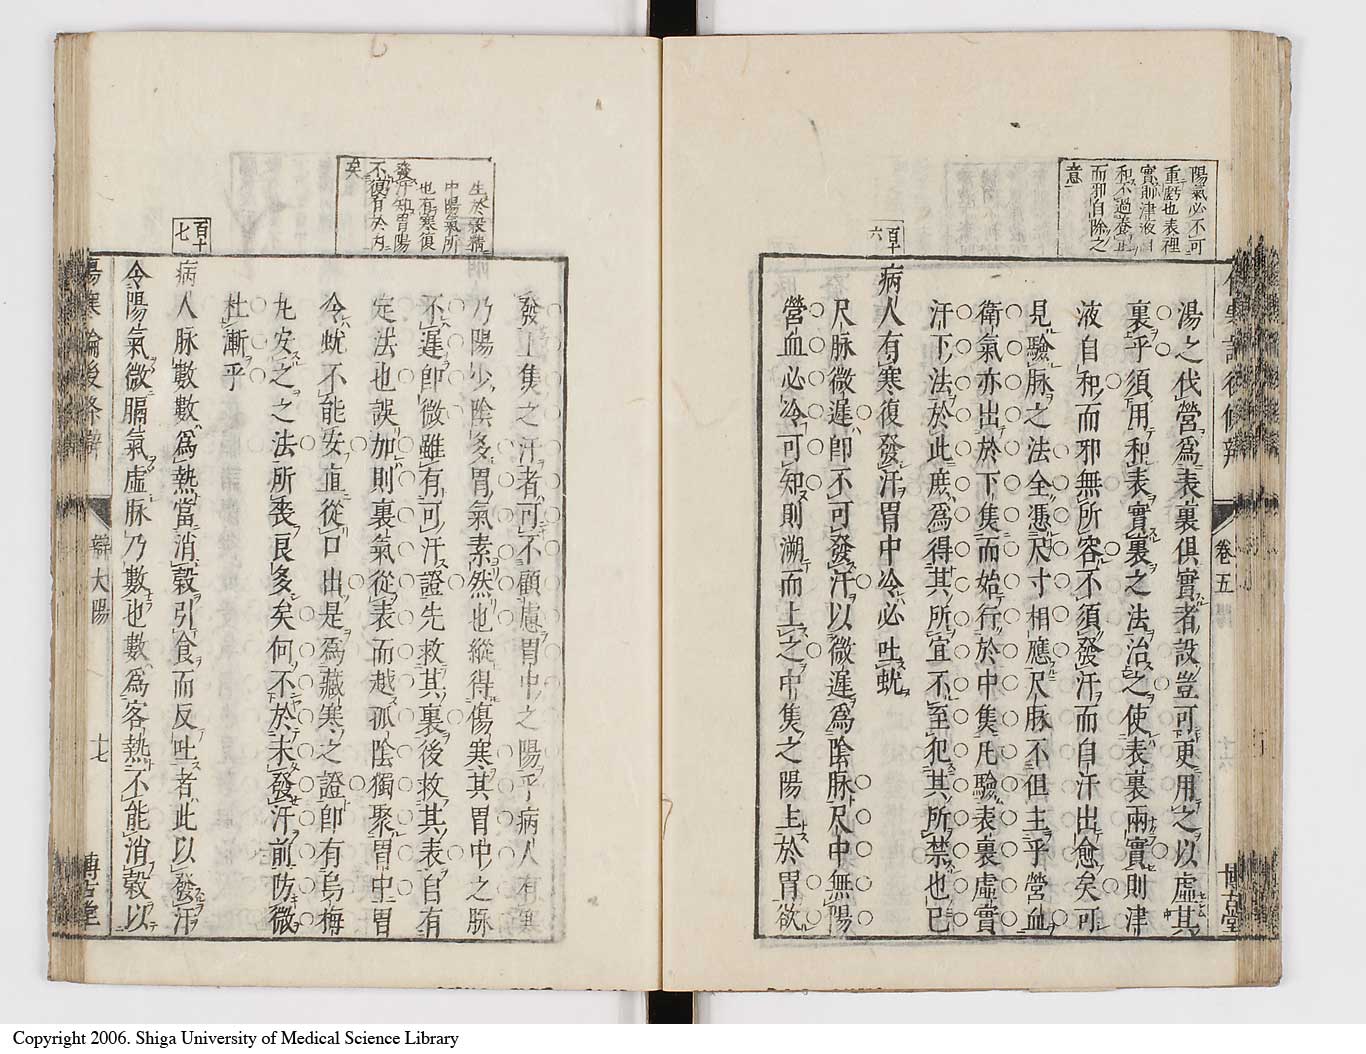 陽氣必不可
重虧也表裡
實則津液自
和不過養正
而邪自除之
意
湯之伐營爲表裏俱實者設豈可更用之以虛其
裏乎須用和表實裏之法治之使表裏兩實則津
液自和而邪無所容不須發汗而自汗出愈矣可
見驗脉之法全憑尺寸相應尺脉不但主乎營血
衛氣亦出於下焦而始行於中焦凡驗表裏虛實
汗下法於此庶爲得其所宜不至犯其所禁也已
百十六
病人有寒復發汗胃中冷必吐蚘
尺脉微遲卽不可發汗以微遲爲陰脉尺中無陽
營血必冷可知則溯而上之中焦之陽上於胃欲
卷五
生於穀精
中陽氣所
也有寒復
發汗知胃陽
不復有於內
矣
發上焦之汗者可不顧慮胃中之陽乎病人有寒
乃陽少陰多胃氣素然也縱得傷寒其胃中之脉
不遲卽微雖有可汗證先救其裏後救其表自有
定法也誤加則裏氣從表而越孤陰獨聚胃中胃
冷蚘不能安直從口出是爲藏寒之證卽有烏梅
丸安之之法所喪良多矣何不於未發汗前防微
杜漸乎
百十七
病人脉數數爲熱當消穀引食而反吐者此以發汗
令陽氣微膈氣虛脉乃數也數爲客熱不能消穀以
傷寒論後條辯
辯太陽
十七
博古堂
Copyright 2006. Shiga University of Medical Science Library